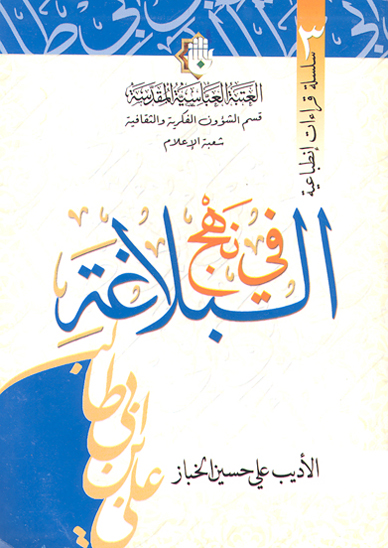 سلسلة قراءات إنطباعية ٣
العتبة العباسية المقدسة
قسم الشؤون الفكرية والثقافية
شعبة الإعلام
في نهج
البلاغة
علي بن ابي طالب
الأديب علي حسين الخباز